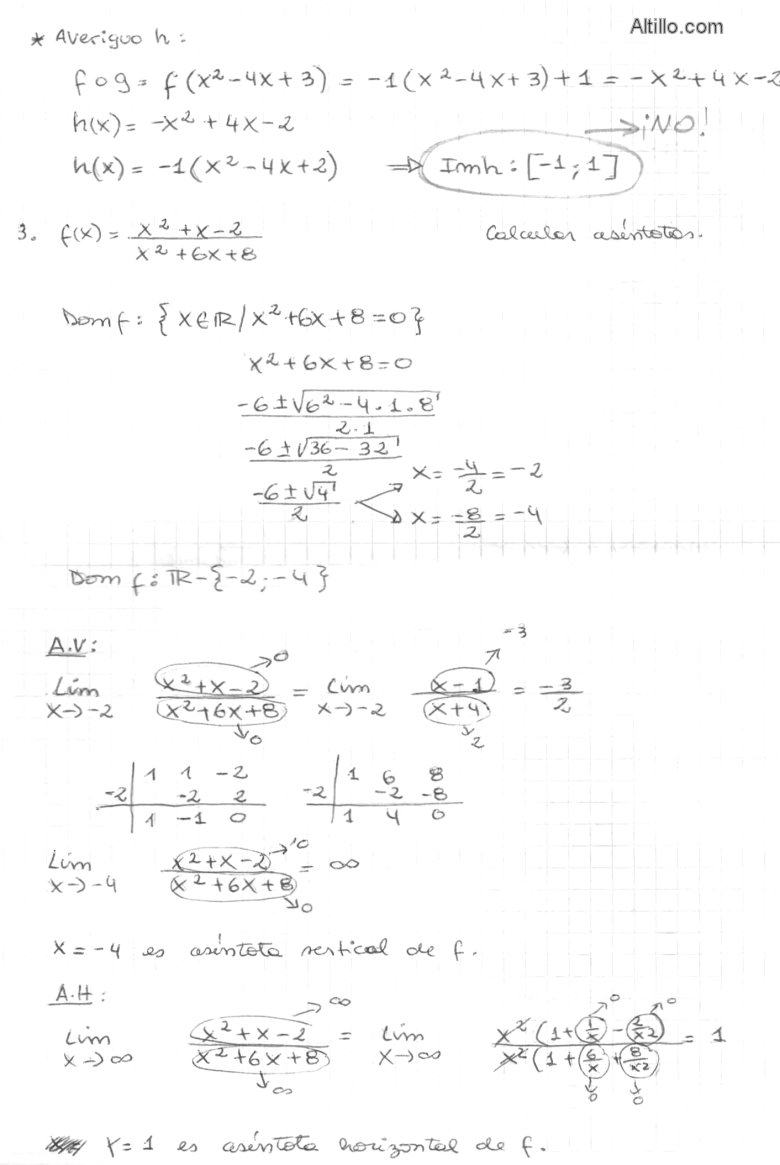 Altillo.com
* Averiguo h:
f o g = f(x² - 4x + 3) = -1(x² - 4x + 3) + 1 = -x² + 4x - 2
h(x) = -x² + 4x - 2
→ ¡NO!
h(x) = -1(x² - 4x + 2) ⇒ Imh: [-1; 1]
3. f(x) = (x² + x - 2)/(x² + 6x + 8) Calcular asíntotas.
Dom f: {x ∈ ℝ / x² + 6x + 8 = 0}
x² + 6x + 8 = 0
(-6 ± √(6² - 4.1.8))/(2.1)
(-6 ± √(36 - 32))/2
(-6 ± √4)/2
x = -4/2 = -2
x = -8/2 = -4
Dom f: ℝ - {-2; -4}
A.V:
Lím x→-2 (x² + x - 2)→0 / (x² + 6x + 8)→0 = Lím x→-2 (x - 1)→=-3 / (x + 4)→2 = -3/2
1 1 -2 1 6 8
-2 -2 2 -2 -2 -8
1 -1 0 1 4 0
Lím x→-4 (x² + x - 2)→10 / (x² + 6x + 8)→0 = ∞
x = -4 es asíntota vertical de f.
A.H:
Lím x→∞ (x² + x - 2)→∞ / (x² + 6x + 8)→∞ = Lím x→∞ x²(1 + 1/x→0 - 2/x²→0 / x²(1 + 6/x→0 + 8/x²→0 = 1
Y = 1 es asíntota horizontal de f.